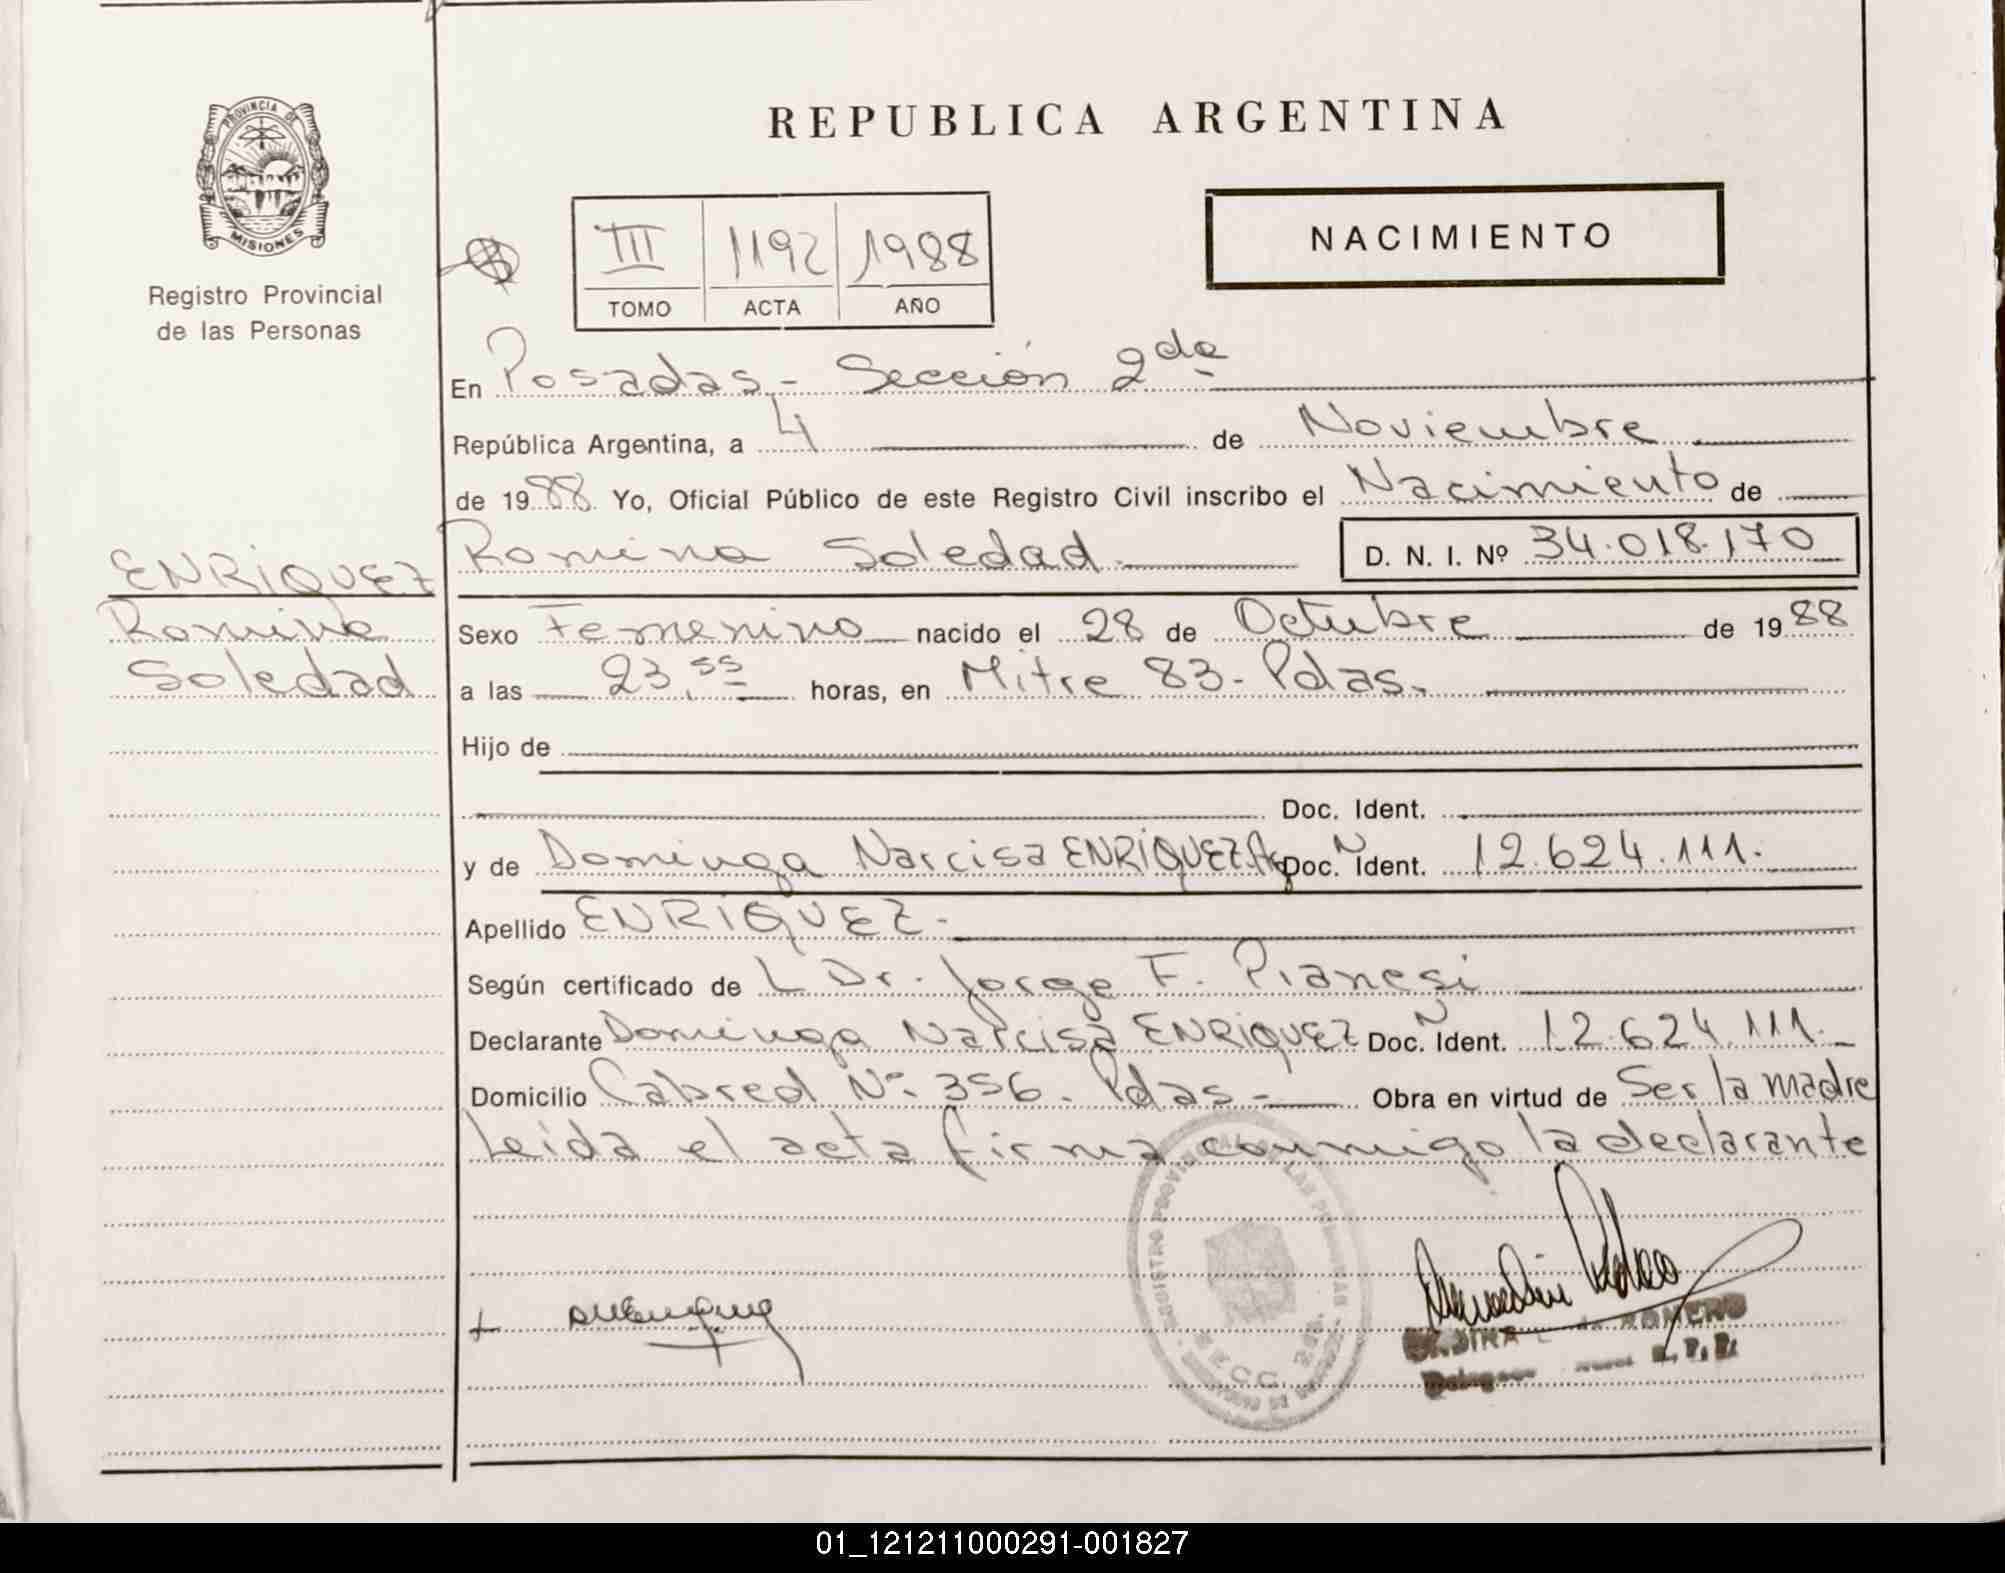 REPUBLICA ARGENTINA
PROVINCIA DE
MISIONES
Registro Provincial
de las Personas
III 1192 1988
TOMO ACTA AÑO
NACIMIENTO
En Posadas - Sección 2da
República Argentina, a 4 de Noviembre
de 1988 Yo, Oficial Público de este Registro Civil inscribo el Nacimiento de
Romina Soledad D. N. I. Nº 34.018.170
ENRIQUEZ
Romina
Soledad
Sexo Femenino nacido el 28 de Octubre de 1988
a las 23,55 horas, en Mitre 83 - Pdas.
Hijo de
Doc. Ident.
y de Dominga Narcisa ENRIQUEZ. Doc. N Ident. 12.624.111.
Apellido ENRIQUEZ -
Según certificado de L Dr. Jorge F. Pianesi
Declarante Dominga Narcisa ENRIQUEZ Doc. N Ident. 12.624.111.
Domicilio Cabred Nº 356. Pdas - Obra en virtud de Ser la madre
Leida el acta firma conmigo la declarante
REGISTRO PROVINCIAL DE LAS PERSONAS
SECC. 2da
ROMERO
01_121211000291-001827